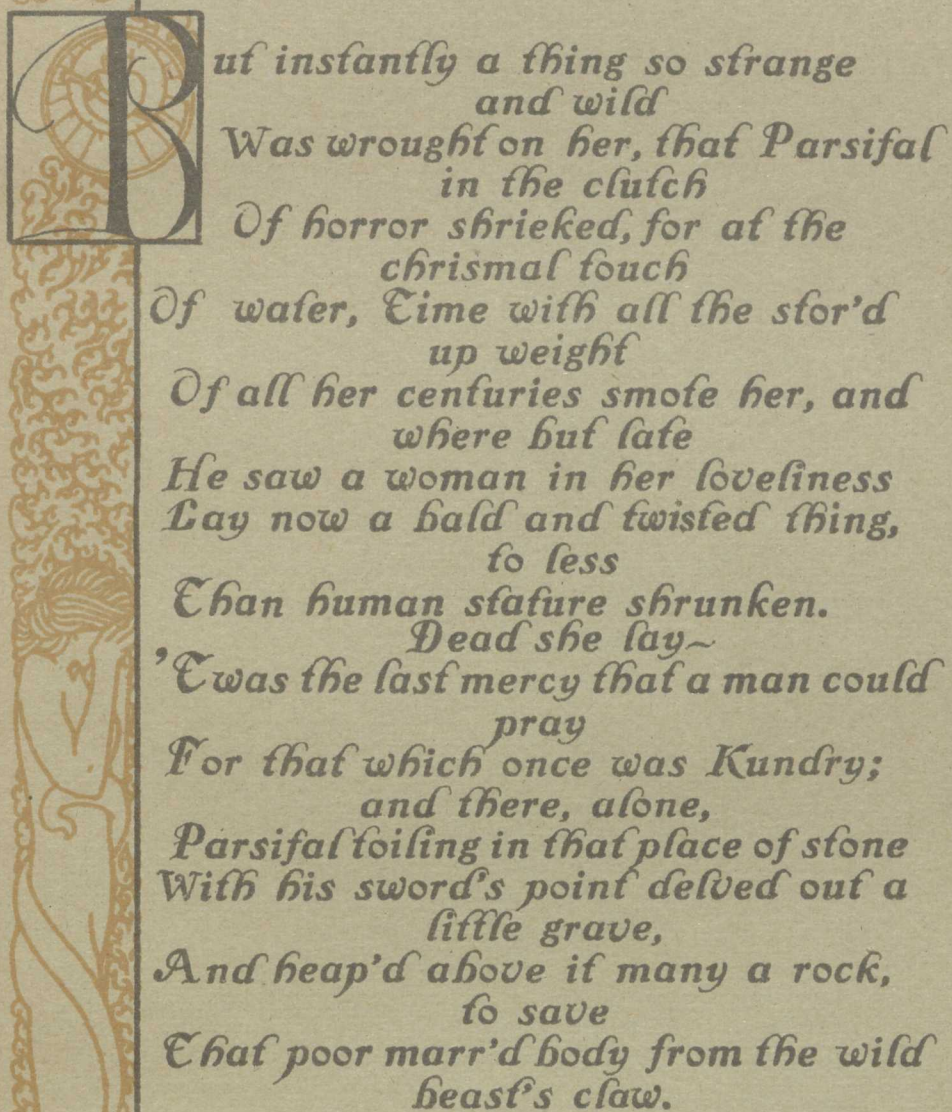 But instantly a thing so strange
and wild
Was wrought on her, that Parsifal
in the clutch
Of horror shrieked, for at the
chrismal touch
Of water, Time with all the stor'd
up weight
Of all her centuries smote her, and
where but late
He saw a woman in her loveliness
Lay now a bald and twisted thing,
to less
Than human stature shrunken.
Dead she lay~
'Twas the last mercy that a man could
pray
For that which once was Kundry;
and there, alone,
Parsifal toiling in that place of stone
With his sword's point delved out a
little grave,
And heap'd above it many a rock,
to save
That poor marr'd body from the wild
beast's claw.